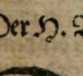 Der H.